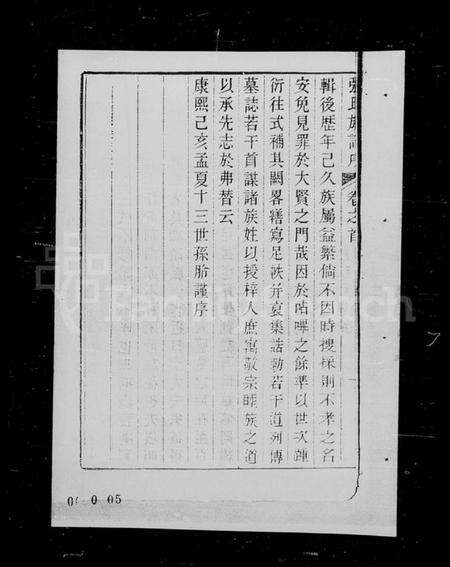 張氏族譜序 卷之首
輯後歷年已久族屬益繁倘不因時搜採則不孝之名
安免見罪於大賢之門哉因於呫嗶之餘準以世次
衍往式補其闕畧繕寫足帙并裒集誥勅若干道列傳
墓誌若干首謀諸族姓以授梓人庶寓敬宗睦族之道
以承先志於弗替云
康熙己亥孟夏十三世孫 謹序
0 0 05